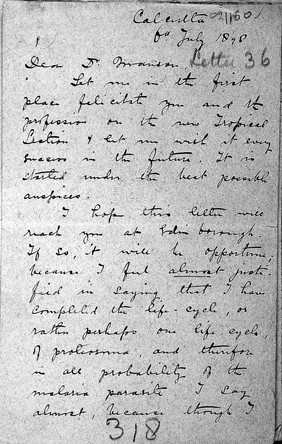 Calcutta
6th July 1898
Letter 36
Dear Dr Manson
Let me in the first
place felicitate you and the
profession on the new Tropical
Section & let me wish it every
success in the future. It is
started under the best possible
auspices.
I hope this letter will
reach you at Edinborough.
If so, it will be opportune,
because I feel almost justi-
fied in saying that I have
completed the life-cycle, or
rather perhaps one life-cycle,
of proteosoma, and therefore
in all probability of the
malaria parasite. I say
almost, because though I
318